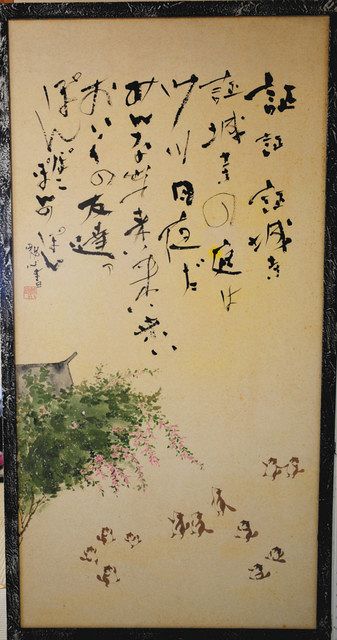 証証証城寺
証城寺の庭は
月夜だ
みんな出て来い来い来い
おいらの友達ァ
ぽんぽこ
ぽんのぽん